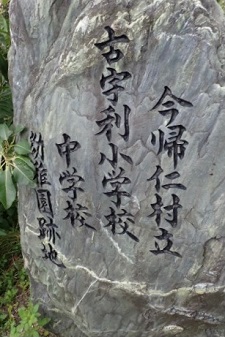 今帰仁村立
古宇利小学校
中学校
幼稚園跡地